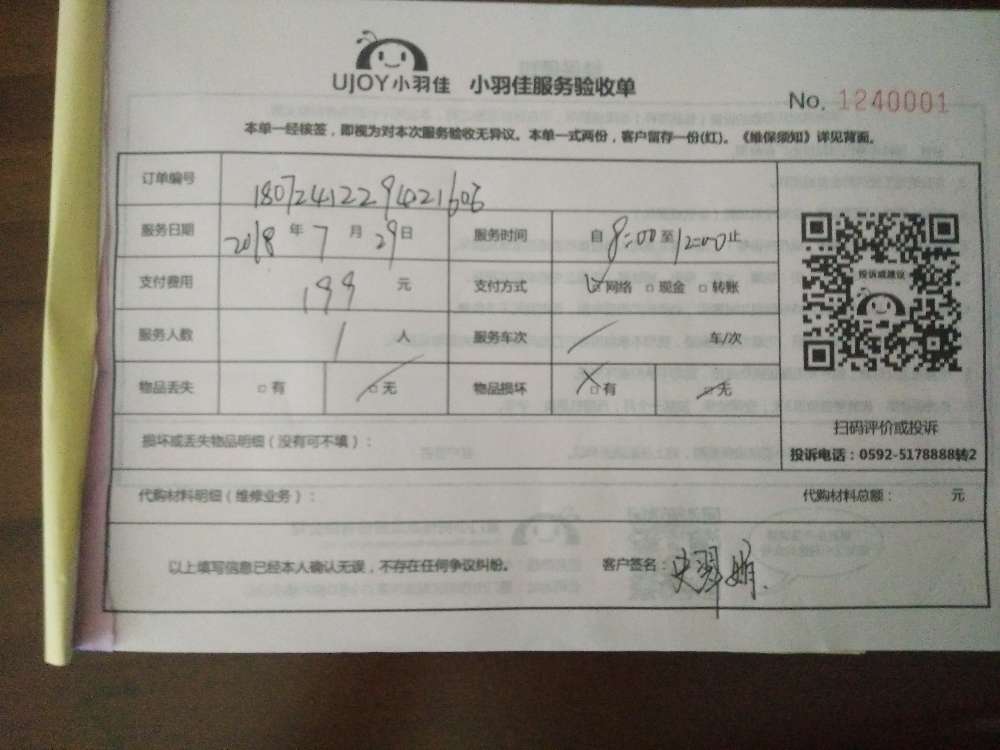 UJOY小羽佳 小羽佳服务验收单
No. 1240001
本单一经接签，即视为对本次服务验收无异议。本单一式两份，客户留存一份(红)。《维保须知》详见背面。
订单编号 18072412294021606
服务日期 2018年7月29日 服务时间 自8:00至12:00止
支付费用 199元 支付方式 ☑网络 □现金 □转账
投诉或建议
服务人数 1人 服务车次 / 车/次
物品丢失 □有 ☑无 物品损坏 ☒有 ☑无
扫码评价或投诉
损坏或丢失物品明细（没有可不填）：
投诉电话：0592-5178888转2
代购材料明细（维修业务）： 代购材料总额： 元
以上填写信息已经本人确认无误，不存在任何争议纠纷。 客户签名：史翠娟